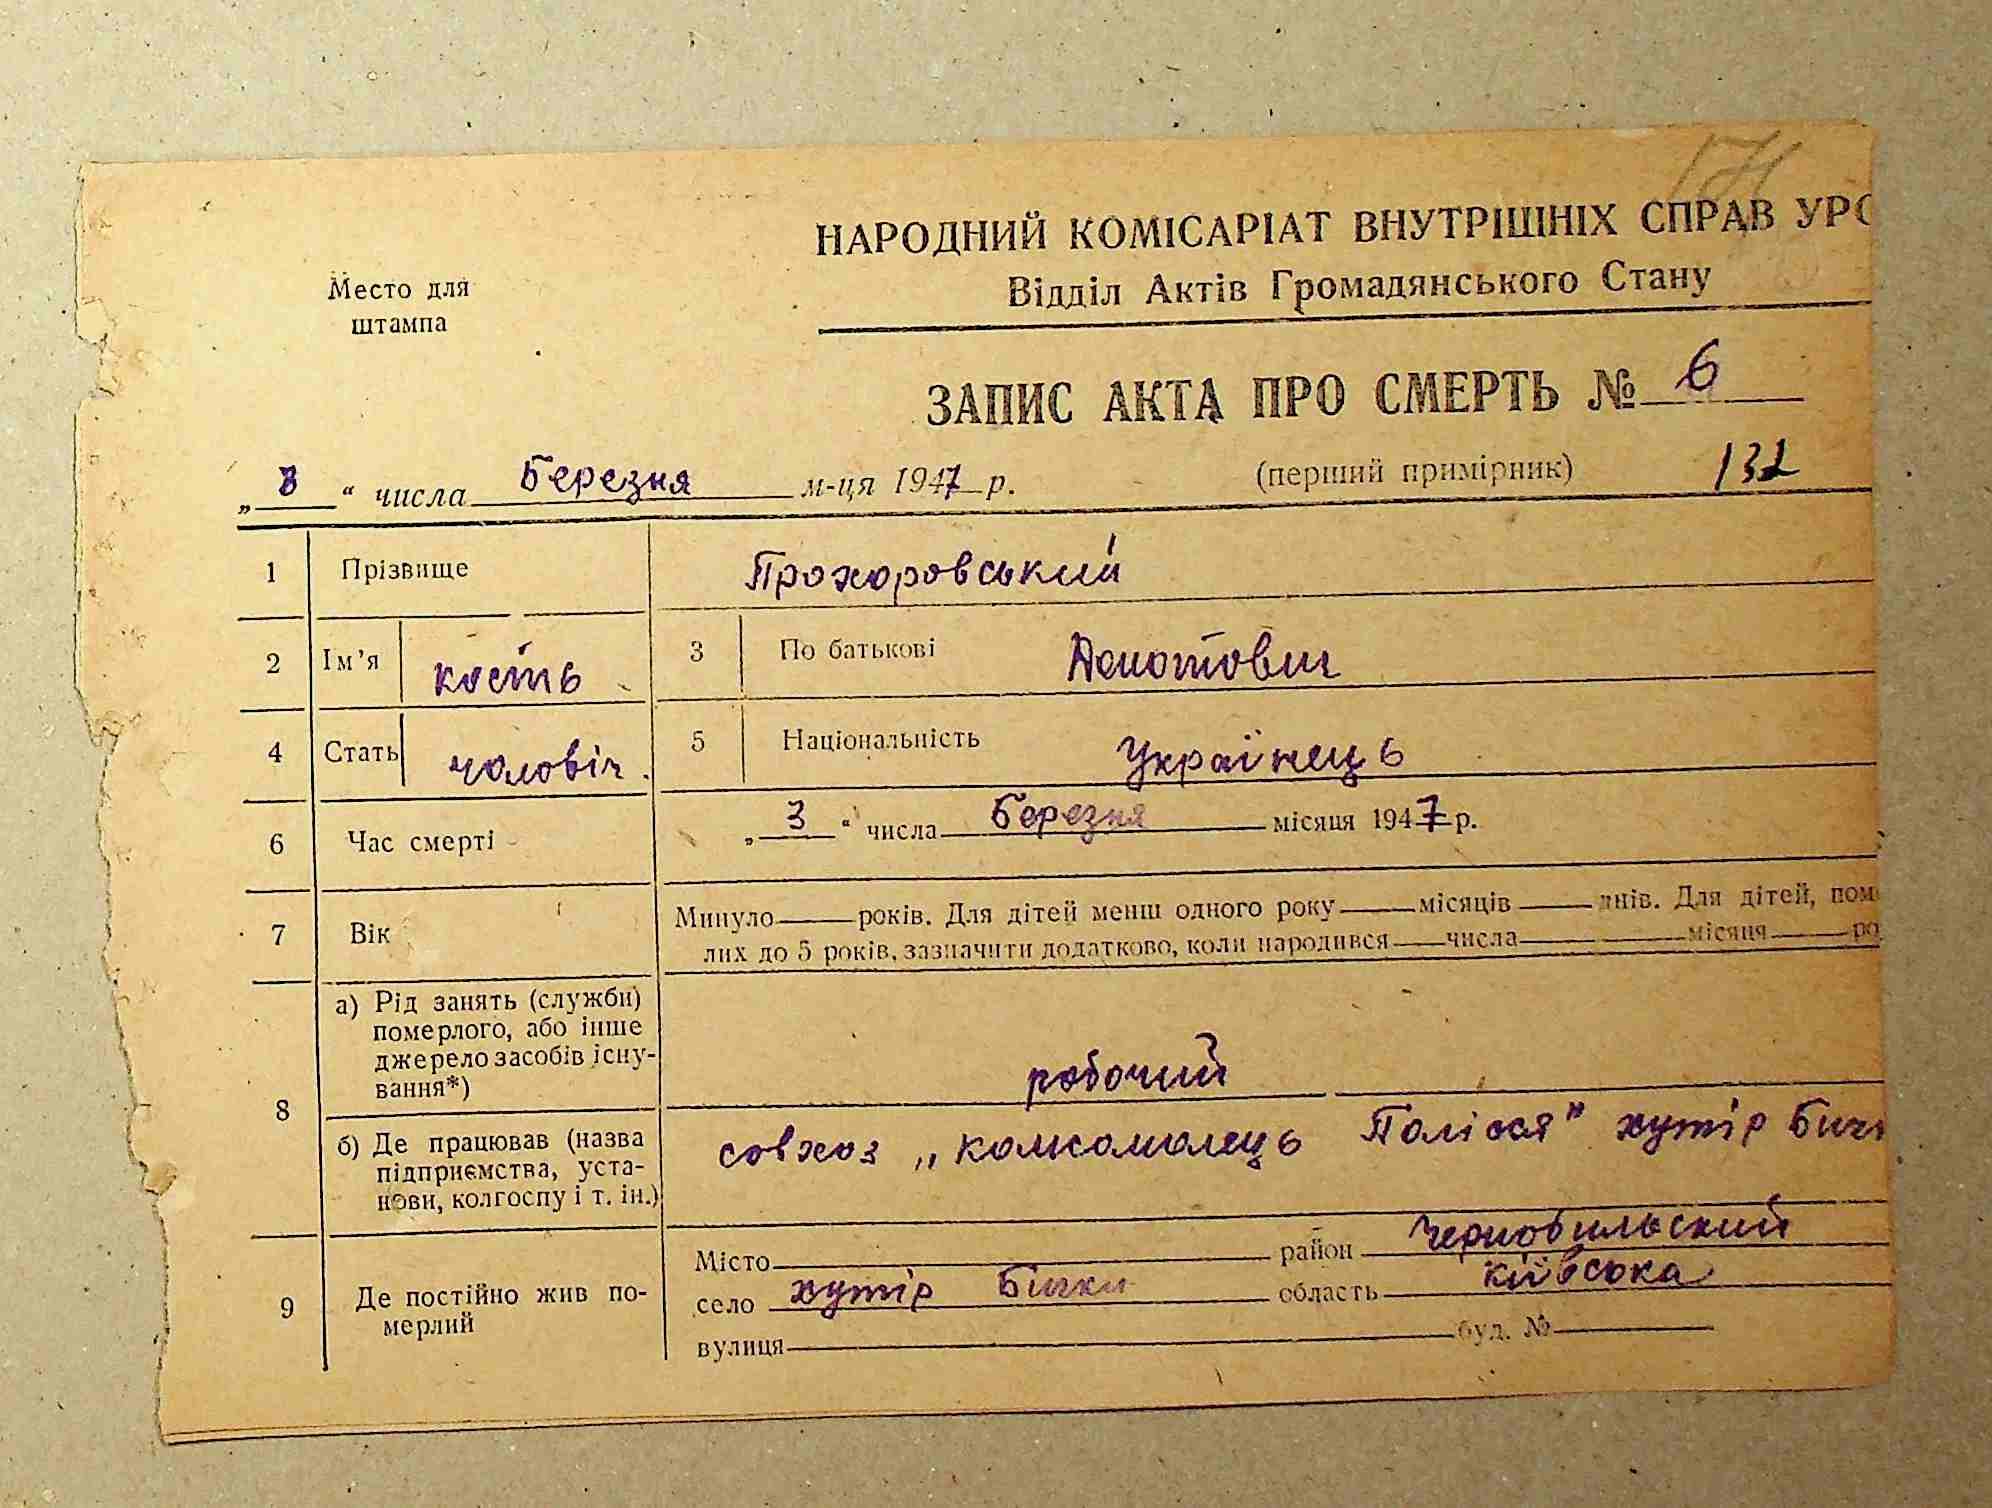 НАРОДНИЙ КОМІСАРІАТ ВНУТРІШНІХ СПРАВ УРС
Відділ Актів Громадянського Стану
Место для
штампа
ЗАПИС АКТА ПРО СМЕРТЬ № 6
„ 3 “ числа Березня м-ця 1947 р. (перший примірник) 132
1 Прізвище Прохоровський
2 Ім'я кость 3 По батькові
4 Стать чоловіч. 5 Національність Українець
6 Час смерті „ 3 “ числа Березня місяця 1947 р.
7 Вік Минуло років. Для дітей менш одного року місяців днів. Для дітей, пом
лих до 5 років, зазначити додатково, коли народився числа місяця ро
8 а) Рід занять (служби)
померлого, або інше
джерело засобів існу-
вання*) робочий
б) Де працював (назва
підприємства, уста-
нови, колгоспу і т. ін.) совхоз „комсомолець Полісся" хутір Бичк
9 Де постійно жив по-
мерлий
Місто район Чернобильский
село хутір Бички область київська
вулиця буд. №